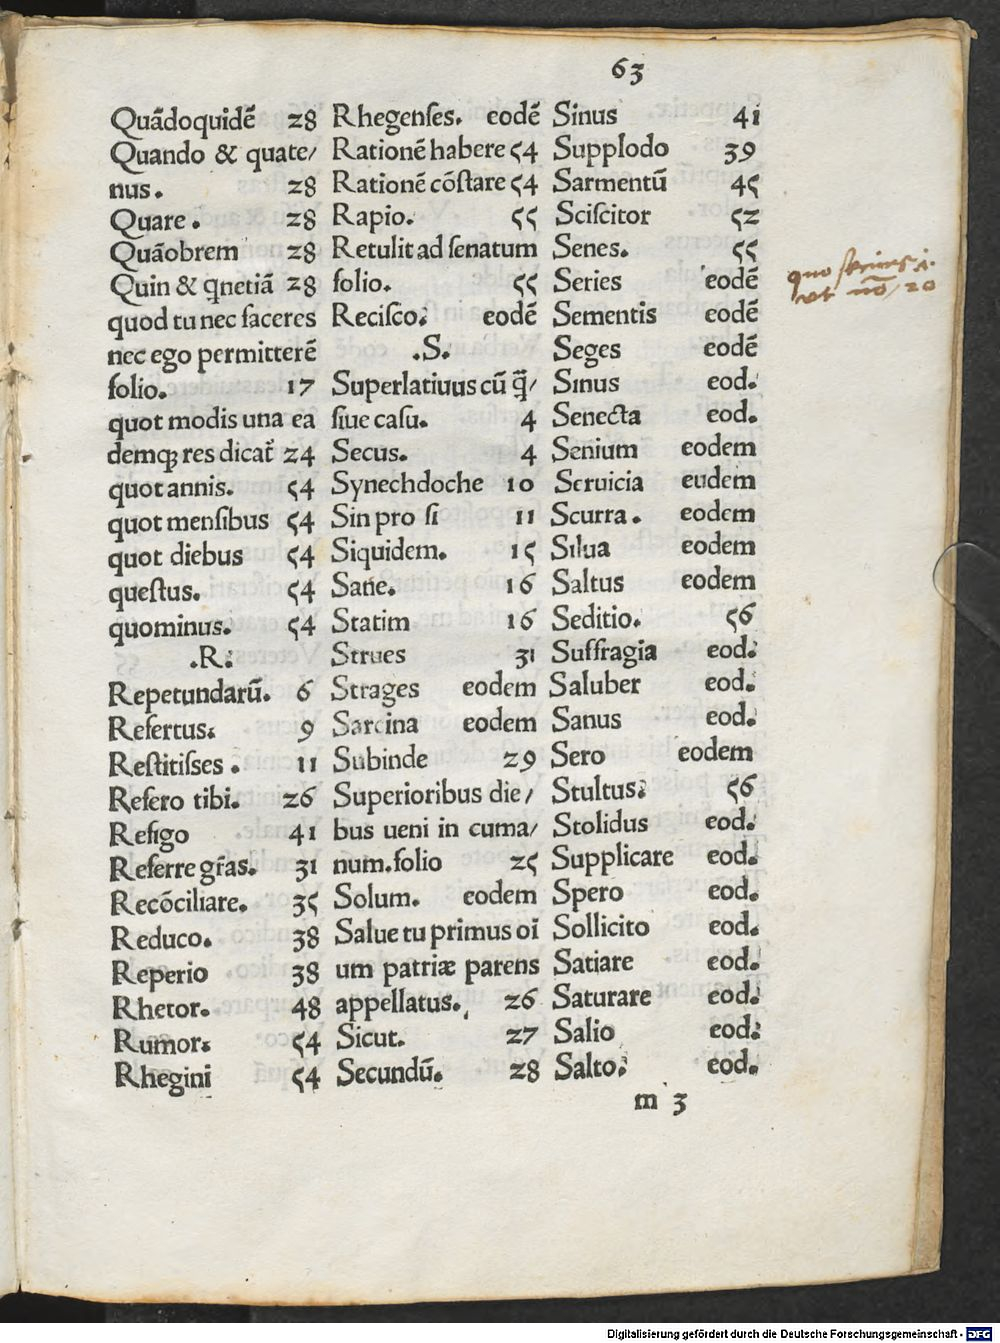 63
Quãdoquidẽ 28
Quando & quate/
nus. 28
Quare. 28
Quãobrem 28
Quin & qnetiã 28
quod tu nec faceres
nec ego permitterẽ
folio. 17
quot modis una ea
demqꝫ res dicat̃ 24
quot annis. 54
quot mensibus 54
quot diebus 54
questus. 54
quominus. 54
.R.
Repetundarũ. 6
Refertus. 9
Restitisses. 11
Refero tibi. 26
Refigo 41
Referre gr̃as. 31
Recõciliare. 35
Reduco. 38
Reperio 38
Rhetor. 48
Rumor. 54
Rhegini 54
Rhegenses. eodẽ
Rationẽ habere 54
Rationẽ cõstare 54
Rapio. 55
Retulit ad senatum
folio. 55
Recisco. eodẽ
.S.
Superlatiuus cũ q̃/
siue casu. 4
Secus. 4
Synechdoche 10
Sin pro si 11
Siquidem. 15
Sane. 16
Statim 16
Strues 31
Strages eodem
Sarcina eodem
Subinde 29
Superioribus die/
bus ueni in cuma/
num. folio 25
Solum. eodem
Salue tu primus oĩ
um patriæ parens
appellatus. 26
Sicut. 27
Secundũ. 28
Sinus 41
Supplodo 39
Sarmentũ 45
Sciscitor 52
Senes. 55
Series eodẽ
Sementis eodẽ
Seges eodẽ
Sinus eod.
Senecta eod.
Senium eodem
Seruicia eudem
Scurra. eodem
Silua eodem
Saltus eodem
Seditio. 56
Suffragia eod.
Saluber eod.
Sanus eod.
Sero eodem
Stultus. 56
Stolidus eod.
Supplicare eod.
Spero eod.
Sollicito eod.
Satiare eod.
Saturare eod.
Salio eod.
Salto. eod.
m 3
Digitalisierung gefördert durch die Deutsche Forschungsgemeinschaft - DFG